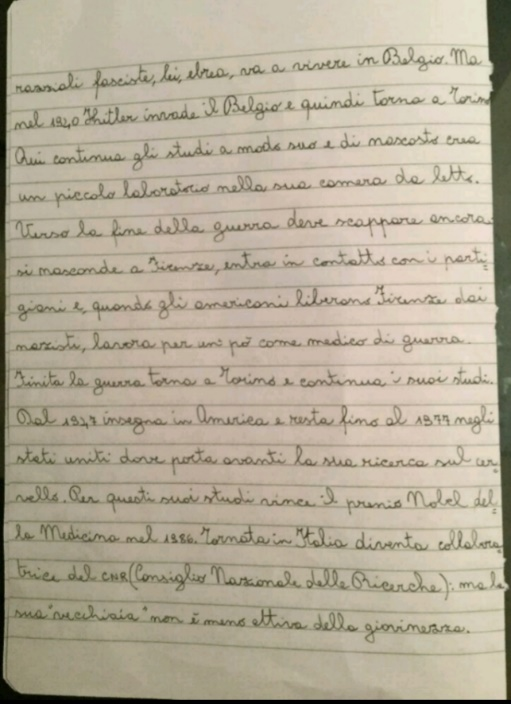 razziali fasciste, lei, ebrea, va a vivere in Belgio. Ma
nel 1940 Hitler invade il Belgio e quindi torna a Torino
Qui continua gli studi a modo suo e di nascosto crea
un piccolo laboratorio nella sua camera da letto.
Verso la fine della guerra deve scappare ancora:
si nasconde a Firenze, entra in contatto con i parti=
giani e, quando gli americani liberano Firenze dai
nazisti, lavora per un pò come medico di guerra.
Finita la guerra torna a Torino e continua i suoi studi.
Dal 1947 insegna in America e resta fino al 1977 negli
stati uniti dove porta avanti la sua ricerca sul cer=
vello. Per questi suoi studi vince il premio Nobel del=
la Medicina nel 1986. Tornata in Italia diventa collabora=
trice del CNR (Consiglio Nazionale delle Ricerche): ma la
sua "vecchiaia" non è meno attiva della giovinezza.